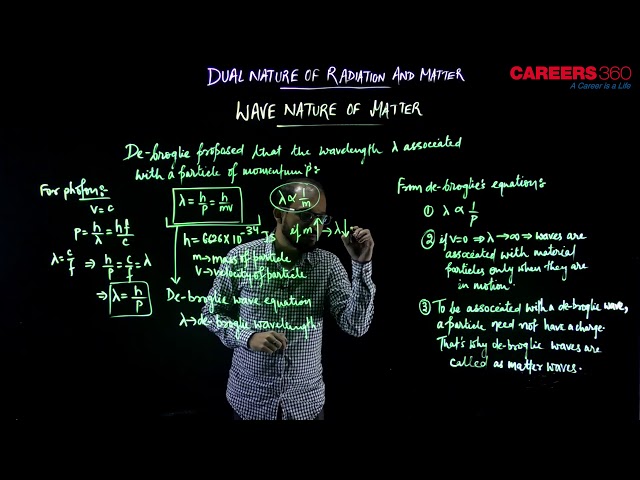 DUAL NATURE OF RADIATION AND MATTER
CAREERS360
A Career is a Life
WAVE NATURE OF MATTER
De-broglie proposed that the wavelength λ associated
with a particle of momentum 'p':
For photon:
v=c
p = h/λ = hf/c
λ = c/f ⇒ h/p = c/f = λ
⇒ λ = h/p
λ = h/p = h/mv
λ ∝ 1/m
if m↑ → λ↓
h = 6.626×10^-34 Js
m → mass of particle
v → velocity of particle
De-broglie wave equation
λ → de-broglie wavelength
From de-broglie's equation:
① λ ∝ 1/p
② if v=0 ⇒ λ → ∞ ⇒ waves are
associated with material
particles only when they are
in motion.
③ To be associated with a de-broglie wave,
a particle need not have a charge.
That's why de-broglie waves are
called as matter waves.